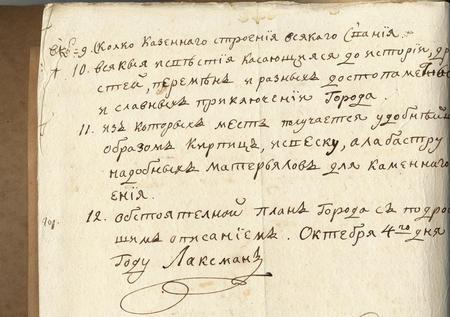 9. Сколко казеннаго строения всякаго звания
10. всякыя извѣстия касающияся до истории, др
стей, перемѣнъ и разныхъ достопаметны
и славныхъ приключении города.
11. изъ которыхъ местъ получается удобнѣй
образомъ кирпицъ, и песку, алабастру
надобныхъ матерьяловъ для каменнаг
ения.
12. обстоятелной планъ города съ подро
шимъ описаниемъ. Октебря 4го дня
году Лаксманъ